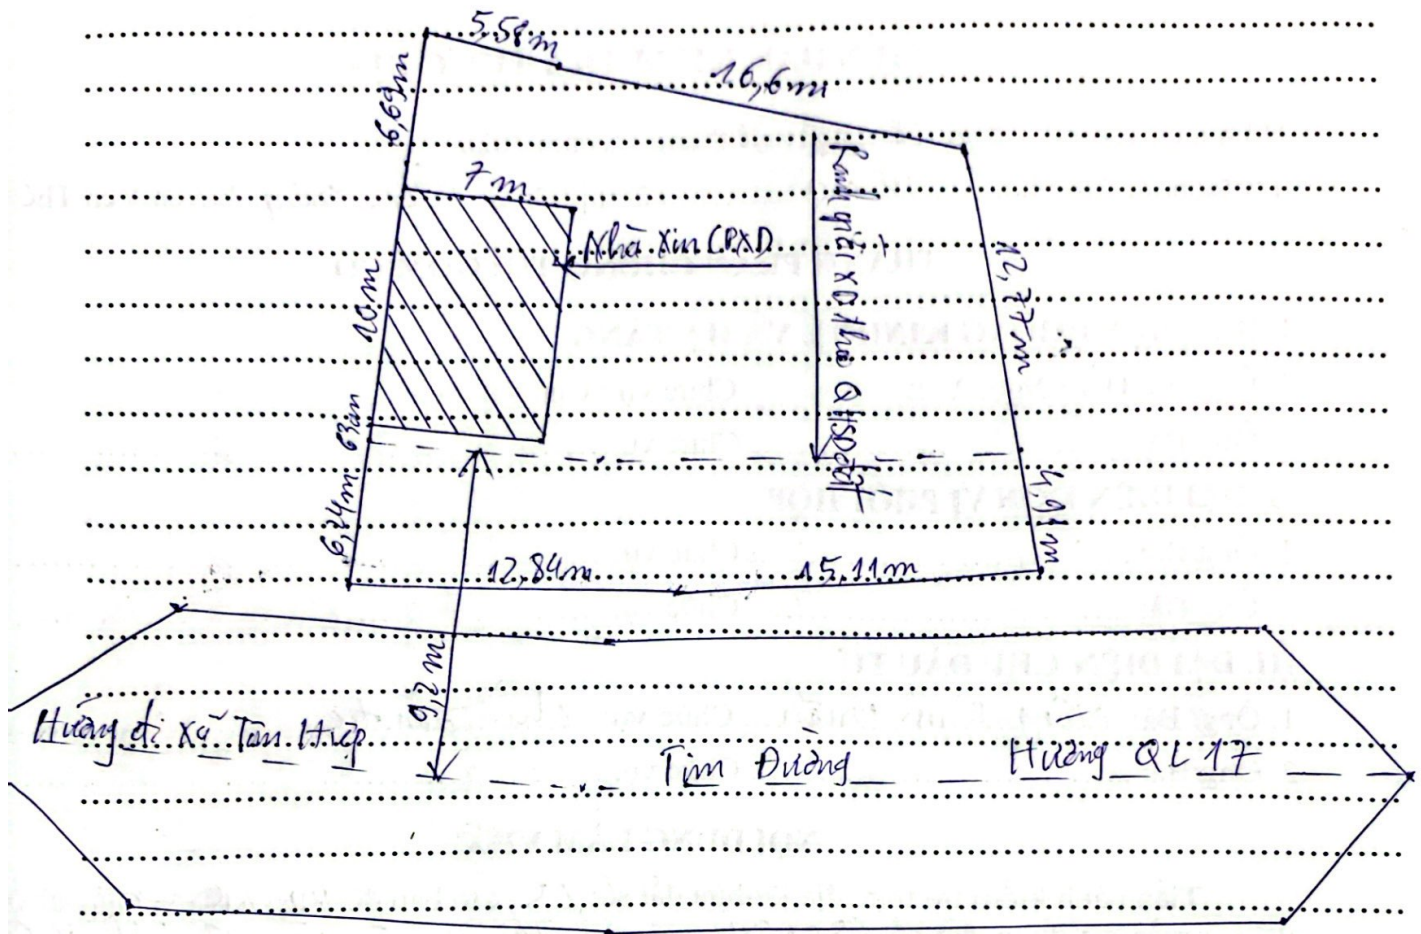 5,58m
16,6m
6,69m
7 m
Nhà xin CPXD
Ranh giới XD theo QHSD đất
12,77m
10m
63cm
6,24m
4,94m
12,84m
15,11m
9,2 m
Hướng đi xã Tân Hiệp
Tim Đường
Hướng QL 17